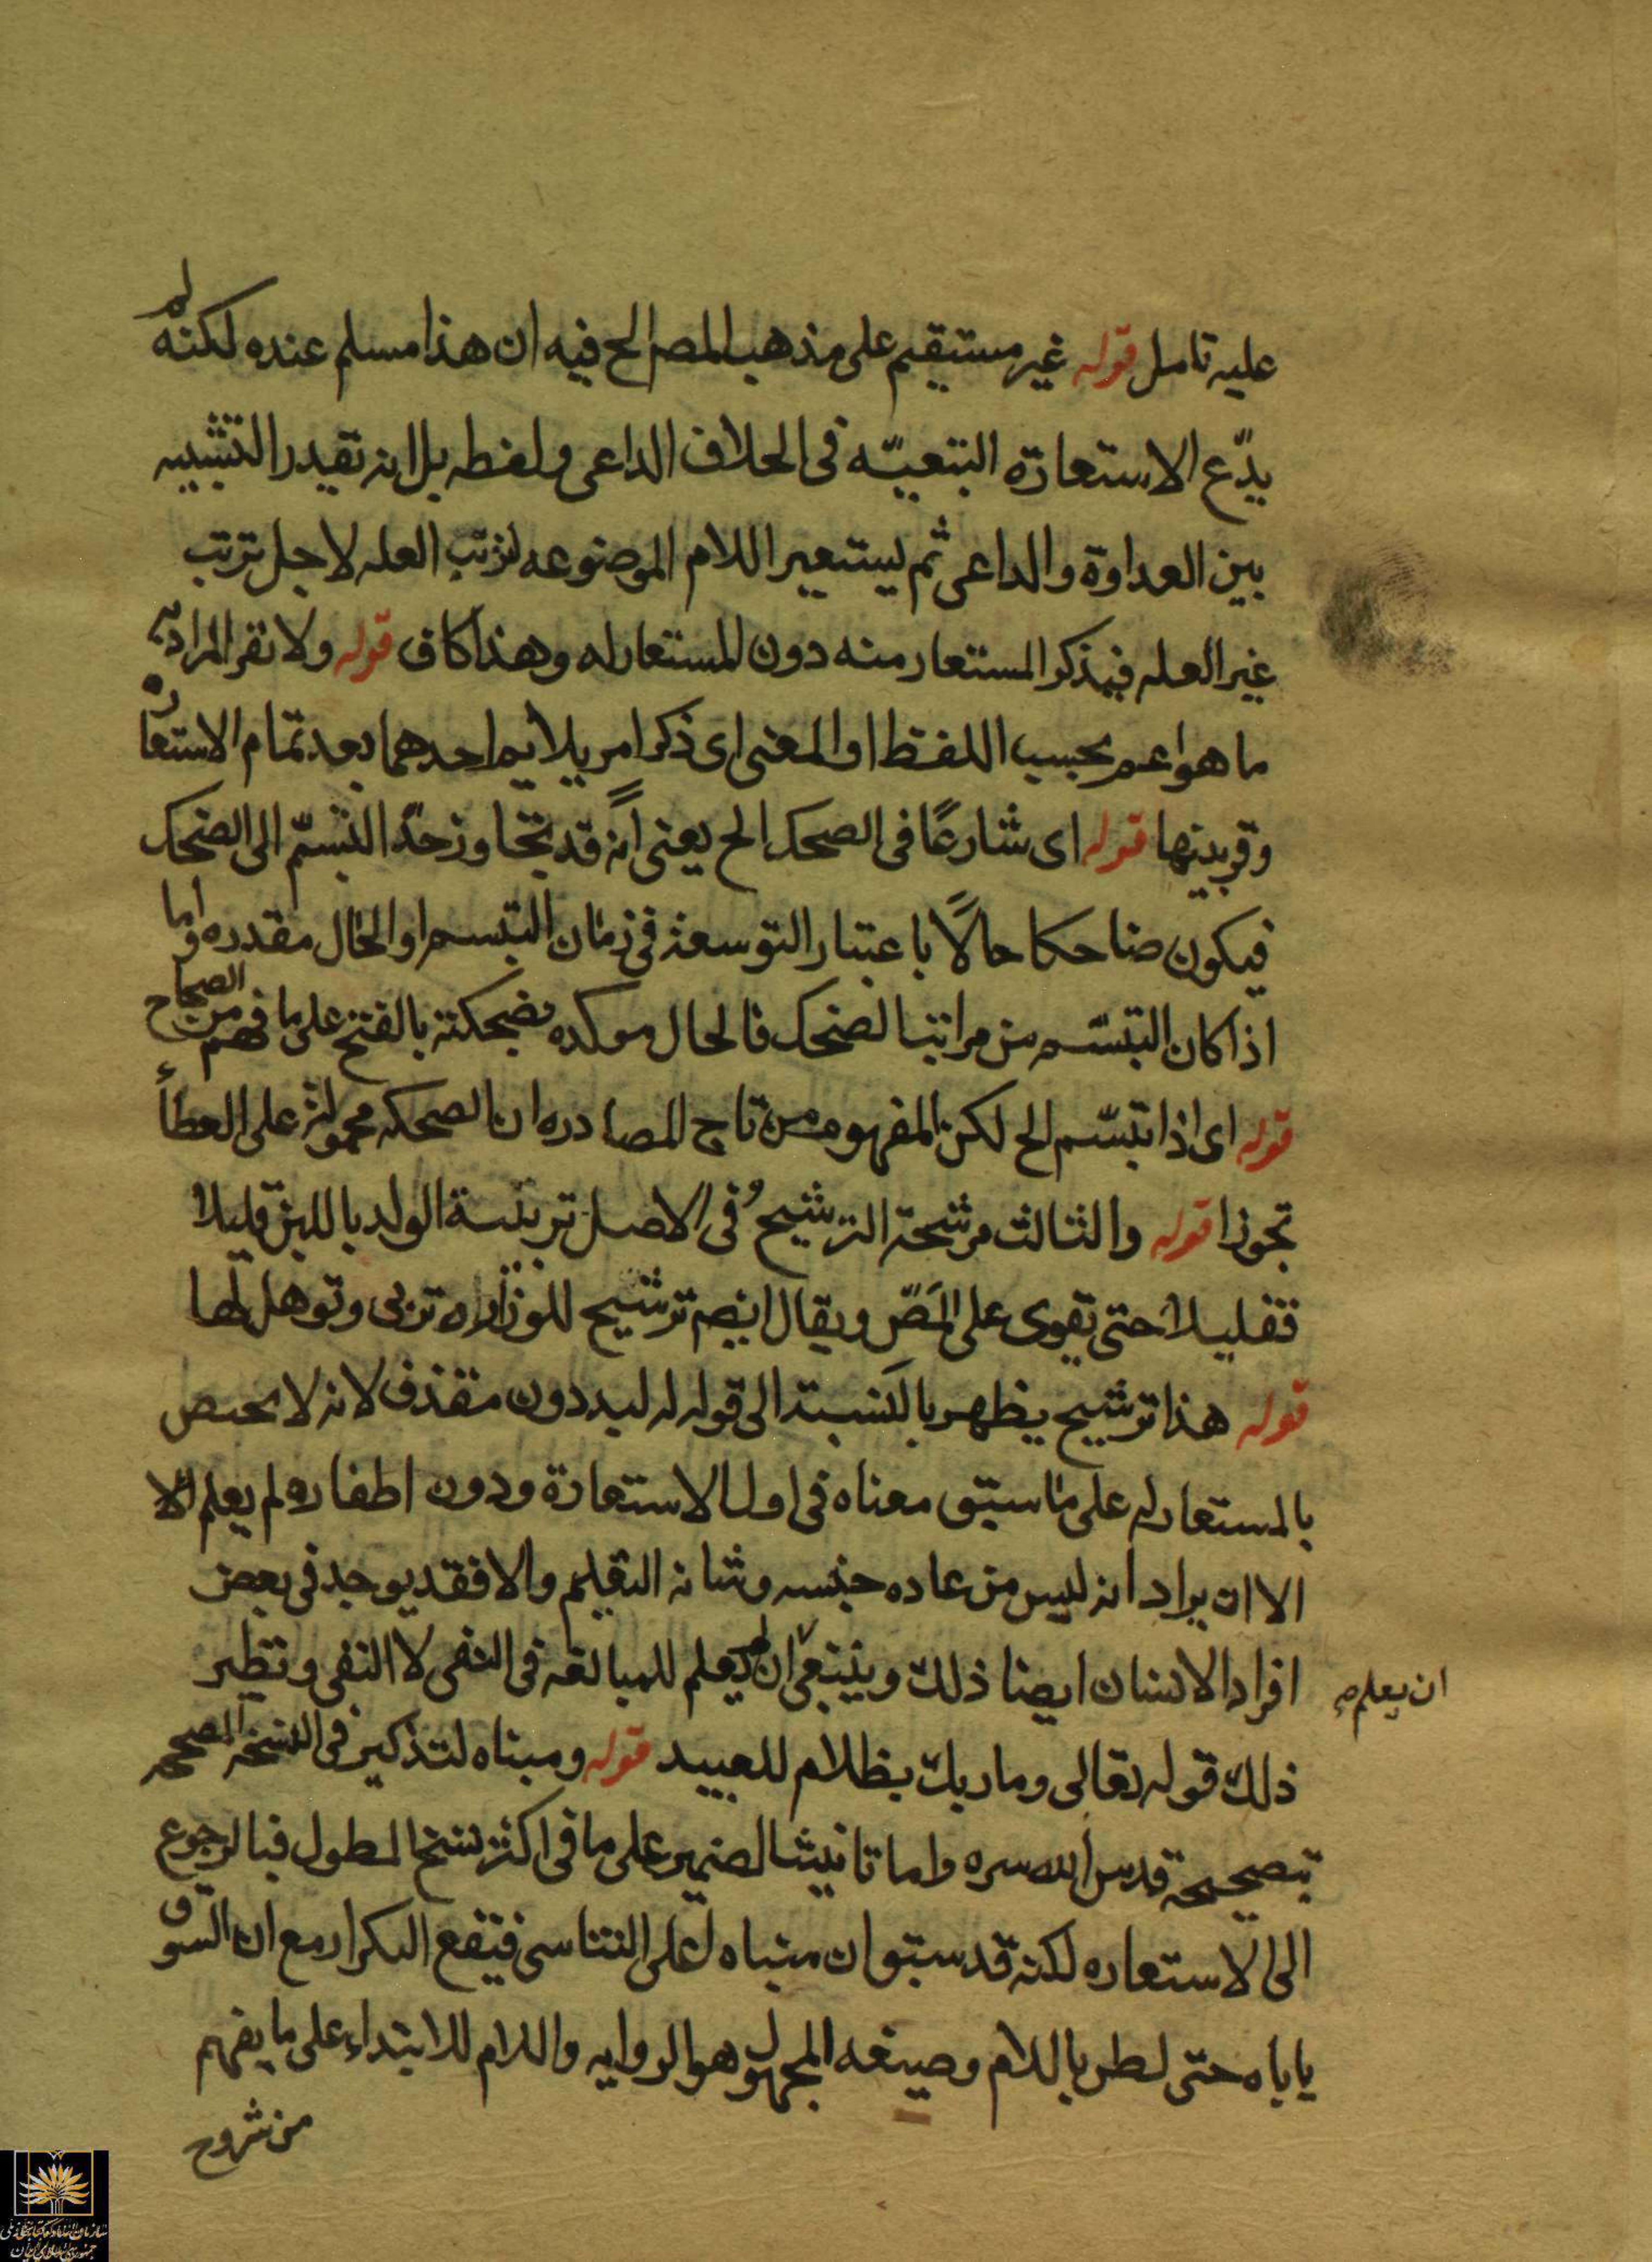 عليه تامل قوله غير مستقيم على مذهب المصر الخ فيه ان هذا مسلم عنده لكنه لم
يدّع الاستعارة التبعيّه فى الحلاف الداعى ولفظه بل انه تقيدر التشبيه
بين العداوة والداعى ثم يستعير اللام الموضوعه لترتب العله لاجل ترتب
غير العله فيذكر المستعار منه دون المستعار له وهذا كاف قوله ولا تقر المراد به
ما هو اعم بحسب اللفظ او المعنى اى ذكر امر يلايم احدهما بعد تمام الاستعارة
وقرينتها قوله اى شارعًا فى الصحك الخ يعنى انه قد تجاوز حدّ التبسّم الى الضحك
فيكون ضاحكا حالًا باعتبار التوسعة فى زمان التبسم او الحال مقدره واما
اذا كان التبسّم من مراتب الضحك فالحال موكده بضحكته بالفتح على ما فهم من الصحاح
قوله اى اذا تبسّم الخ لكن المفهوم من تاج المصادره ان الصحكه محمولة على العطاء
تجوزا قوله والثالث مرشحة الترشيح فى الاصل تربية الولد باللبن قليلا
فقليلا حتى تقوى على المَصّ ويقال ايضم ترشيح للوزاره تربى وتوهل لها
قوله هذا ترشيح يظهر بالنسبة الى قوله له لبد دون مقذف لانه لا يحتص
بالمستعار له على ما سبق معناه فى اول الاستعارة ودون اظفاره لم يعلم الا
الا ان يراد انه ليس من عاده جنسه وشانه التقليم والا فقد يوجد فى بعض
افراد الانسان ايضا ذلك وينبغى ان لم يعلم للمبالغه فى النفى لا النفى ونظير
ان يعلم
ذلك قوله تعالى وما ربك بظلام للعبيد قوله ومبناه لتذكير فى النسخه المصححه
تبصحيحة قدس الله سره واما تانيث الضمير على ما فى اكثر نسخ المطول فبالرجوع
الى الاستعاره لكنه قد سبق ان مبناه على التناسى فيقع التكرار مع ان السوق
ياباه حتى لطن باللام وصيغه المجهول هو الروايه واللام للابتداء على ما يفهم
من شروح